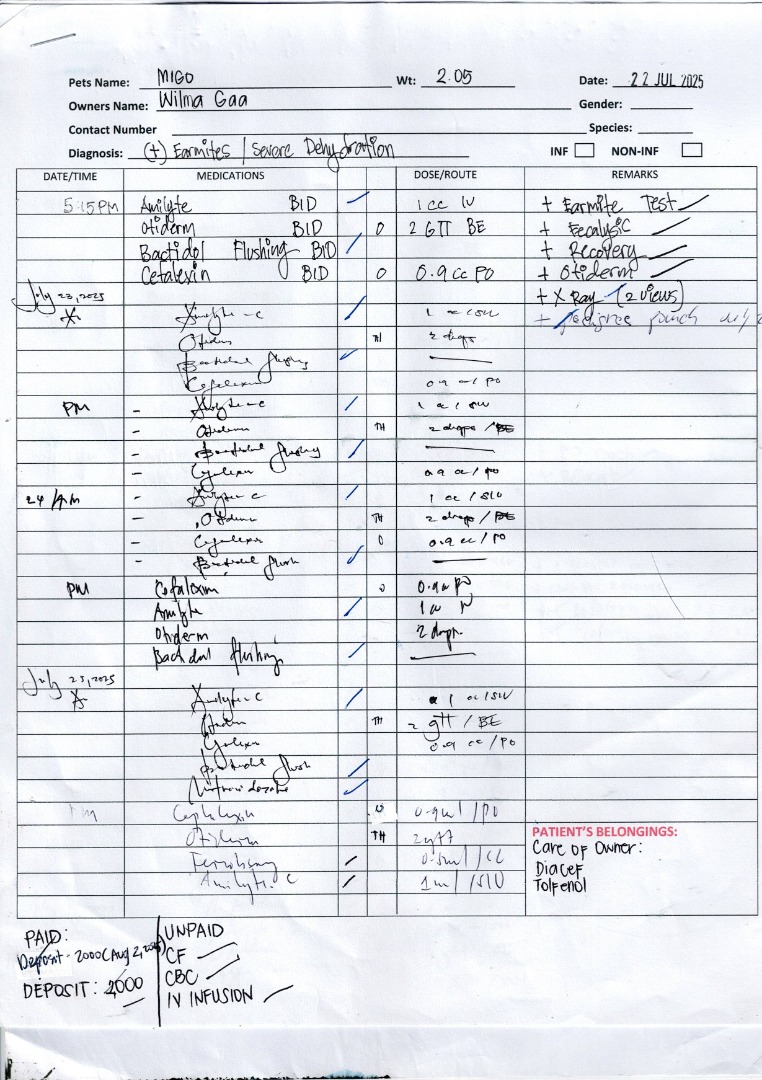 Pets Name: MIGO Wt: 2.05 Date: 22 JUL 2025
Owners Name: Wilma Gaa Gender:
Contact Number Species:
Diagnosis: (+) Earmites / Severe Dehydration INF NON-INF
DATE/TIME MEDICATIONS DOSE/ROUTE REMARKS
5:15PM Amilyte BID 1 cc IV + Earmite Test
Otiderm BID O 2 GTT BE + Fecalysic
Bactidol Flushing BID + Recovery
Cefalexin BID O 0.9 cc PO + Otiderm
July 23, 2025 + X Ray (2 views)
Amilyte-C 1 cc/SIV + pouch
Otiderm TH 2 drops
Bactidol flushing
Cefalexin 0.9 cc/PO
PM - Amilyte-C 1 cc/SIV
- Otiderm TH 2 drops / BE
- Bactidol flushing
- Cefalexin 0.9 cc/PO
24 /AM - Amilyte-C 1 cc/SIV
- Otiderm TH 2 drops / BE
- Cefalexin O 0.9 cc/PO
- Bactidol flush
PM Cefalexin O 0.9cc PO
Amilyte 1cc IV
Otiderm 2 drops
Bactidol flushing
July 25, 2025
Amilyte-C 1 cc/SIV
Otiderm TH 2 gtt / BE
Cefalexin 0.9 cc/PO
Bactidol flush
PM Cephalexin O 0.9ml/PO
Otiderm TH 2gtt
0.5ml/
Amilyte C 1ml/SIV
PATIENT'S BELONGINGS:
Care of Owner:
Diacef
Tolfenol
PAID:
Deposit - 2000 (Aug 2, 2025)
DEPOSIT: 2000
UNPAID
CF
CBC
IV INFUSION